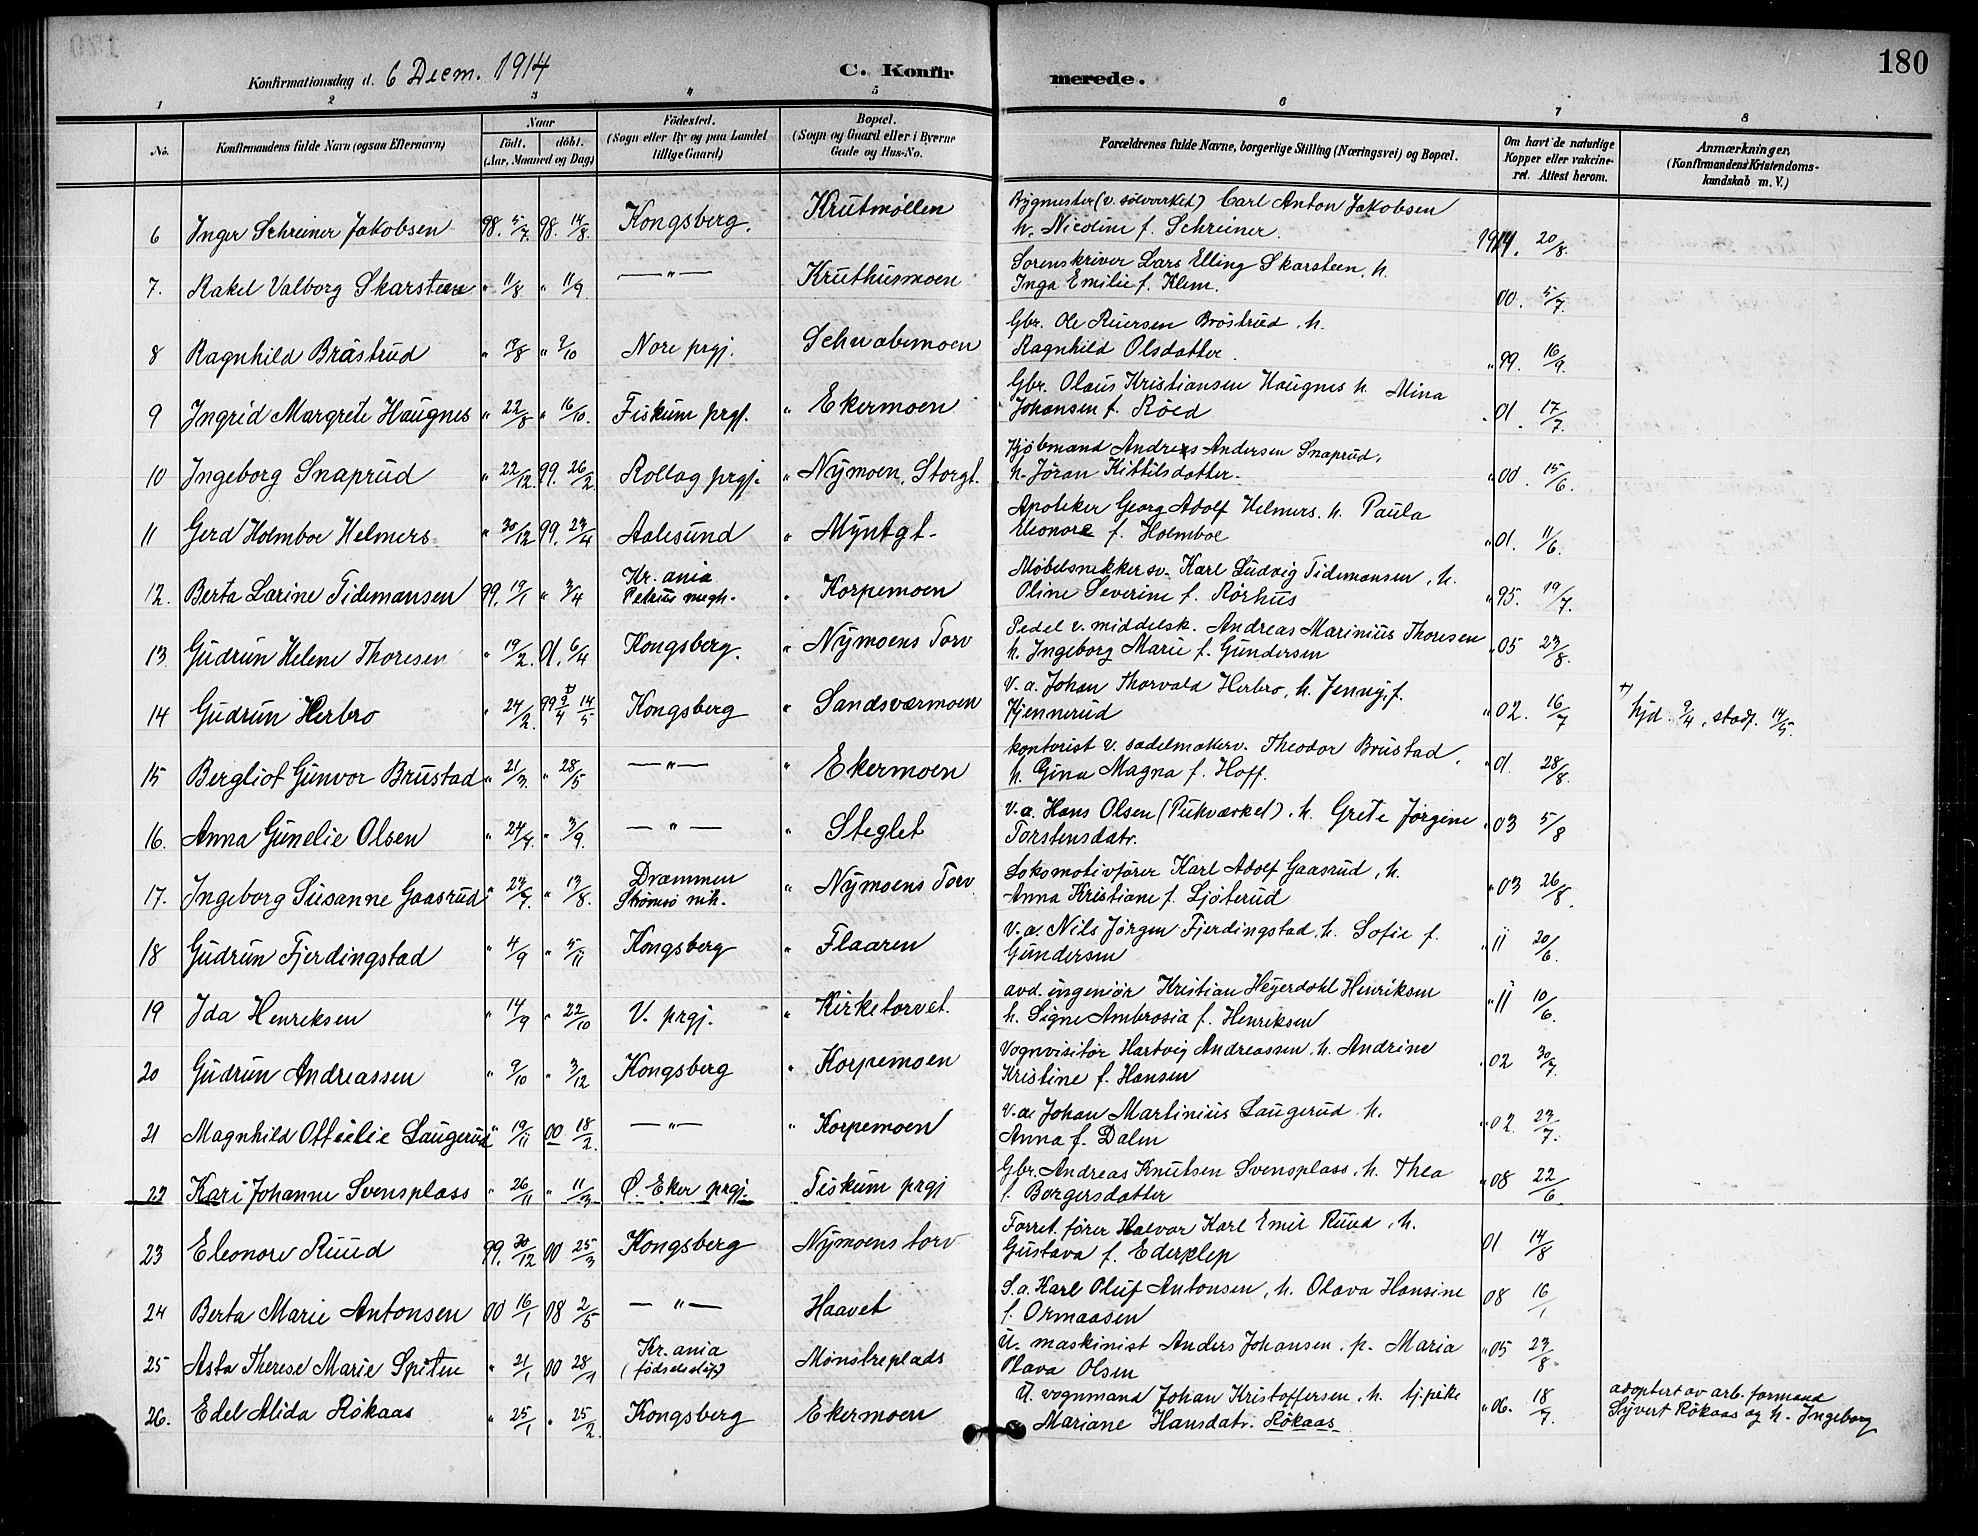 180
Konfirmationsdag d. 6 Decm. 1914
C. Konfirmerede.
1 2 3 4 5 6 7 8
No. | Konfirmandens fulde Navn (ogsaa Efternavn) | Naar födt. döbt. (Aar, Maaned og Dag) | Födested. (Sogn eller By og paa Landet tillige Gaard) | Bopæl. (Sogn og Gaard eller i Byerne Gade og Hus-No. | Forældrenes fulde Navne, borgerlige Stilling (Næringsvei) og Bopæl. | Om havt de naturlige Kopper eller vakcineret. Attest herom. | Anmærkninger, (Konfirmandens Kristendomskundskab m. V.)
6 Inger Schreiner Jakobsen 98. 5/7. 98. 14/8. Kongsberg. Krutmøllen Bygmester (v. sølvverket) Carl Anton Jakobsen
h. Nicoline f. Schreiner. 1914. 20/8.
7. Rakel Valborg Skarsteen " 11/8 " 11/9 —"— Kruthusmoen Sorenskriver Lars Elling Skarsteen. h.
Inga Emilie f. Klem. 00. 5/7.
8 Ragnhild Bråstrud " 19/8 " 9/10 Nore prgj. Schwabemoen Gbr. Ole Reiersen Bröstrud. h.
Ragnhild Olsdatter. " 99. 16/9.
9 Ingrid Margrete Haugnes " 22/8 " 16/10. Fiskum prgj. " Ekermoen Gbr. Olaus Kristiansen Haugnes h. Mina
Johansen f. Röed " 01. 17/7.
10 Ingeborg Snaprud " 22/12. 99. 26/2. Rollag prgj. " Nymoen, Storgt. Kjöbmand Andreas Andersen Snaprud,
h. Jöran Kittilsdatter. " 00. 15/6.
11 Gerd Holmboe Helmers. " 30/12 99. 23/4 Aalesund " Myntgt. Apoteker Georg Adolf Helmers. h. Paula
Eleonore f. Holmboe " 01. 11/6.
12. Berta Larine Tidemansen 99. 19/1 " 3/4 Kr. ania Petrus megh. " Korpemoen Möbelsnekkersv. Karl Ludvig Tidemansen, h.
Oline Severine f. Rörhus " 95. 19/7.
13 Gudrun Helene Thoresen " 19/2. 01. 6/4 Kongsberg. " Nymoens Torv Pedel v. middelsk. Andreas Marinius Thoresen
h. Ingeborg Marie f. Gundersen " 05 23/8.
14 Gudrun Herbro " 24/2. 99 +) 9/4 14/5 Kongsberg " Sandsværmoen V. a. Johan Thorvald Herbro, h. Jenny, f.
Kjennerud " 02. 16/7 +) hjd. 9/4, stadf. 14/5.
15 Bergliot Gunvor Brustad " 21/3. " 28/5 —"— " Ekermoen kontorist v. sadelmakerv. Theodor Brustad,
h. Gina Magna f. Hoff. " 01. 28/8.
16. Anna Gunelie Olsen " 24/7. " 3/9. —"— " Steglet V. a. Hans Olsen (Pukværket). h. Grete Jørgine
Torstensdatr. " 03 5/8
17. Ingeborg Susanne Gaasrud " 23/7. " 13/8. Drammen Strömsö mh. " Nymoens Torv Lokomotivförer Karl Adolf Gaasrud, h.
Anna Kristiane f. Ljöterud " 03 26/8.
18 Gudrun Fjerdingstad " 4/9 " 5/11 Kongsberg " Flaaren V. a. Nils Jörgen Fjerdingstad. h. Sofie f.
Gundersen " 11 20/6.
19 Ida Henriksen " 14/9 " 22/10 V. prgj. " Kirketorvet. avd. ingeniör Kristian Heyerdahl Henriksen
h. Signe Ambrosia f. Henriksen " 11 10/6.
20 Gudrun Andreassen " 9/10 " 3/12 Kongsberg " Korpemoen Vognvisitör Hartvig Andreassen. h. Andrine
Kristine f. Hansen " 02 30/7.
21 Magnhild Ottielie Laugerud " 19/11 00 18/2. —"— " Korpemoen V. a. Johan Martinius Laugerud. h.
Anna f. Dalen " 02. 23/7.
22 Kari Johanne Svensplass " 26/11 " 11/3. Ø. Eker prgj. Fiskum prgj Gbr. Andreas Knutsen Svensplass, h. Thea
f. Borgersdatter " 08 22/6
23 Eleonore Ruud 99. 30/12 00 25/3 Kongsberg Nymoens torv Forret. förer Halvor Karl Emil Ruud, h.
Gustava f. Ederklep 01 14/8
24 Berta Marie Antonsen 00 16/1 08 2/5 —"— Haavet S. a. Karl Oluf Antonsen, h. Olava Hansine
f. Ormaasen 08 16/1
25 Asta Therese Marie Spiten " 21/1 00 28/1 Kr. ania (födselsstif.) Mönstreplads U. maskinist Anders Johansen. p. Maria
Olava Olsen " 05 23/8.
26. Edel Alida Rökaas " 25/1 " 25/2. Kongsberg Ekermoen U. vognmand Johan Kristoffersen, h. tj.pike
Mariane Hansdatr. Rökaas. " 06. 18/7. adoptert av arb. formand
Syvert Rökaas og h. Ingeborg